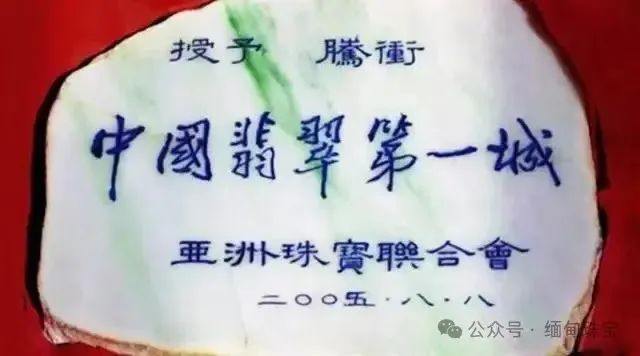 授予 騰衝
中國翡翠第一城
亞洲珠寶聯合會
二〇〇五·八·八
公众号·缅甸珠宝